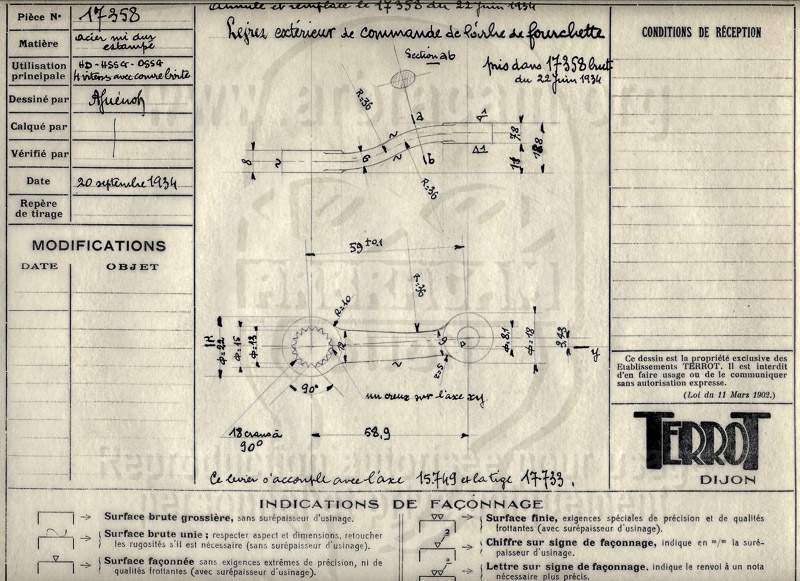 Annule et remplace le 17358 du 22 juin 1934
Pièce N° 17358
Matière acier mi dur
estampé
Utilisation principale HD-HSSG-OSSG
4 vitesses avec
Dessiné par
Calqué par
Vérifié par
Date 20 septembre 1934
Repère de tirage
MODIFICATIONS
DATE OBJET
extérieur de commande de l'arbre de fourchette
Section ab
pris dans 17358 brut
du 22 juin 1934
R=36
a
b
R=36
8
9
Δ1
7,8
11
18,8
59 ±0,1
R=36
R=10
Φ=22
Φ=15
Φ=13
12
9
Φ=8,1
Φ=18
y
90°
un creux sur l'axe xy.
18 crans à
90°
58,9
Ce levier s'accouple avec l'axe 15749 et la tige 17733.
CONDITIONS DE RÉCEPTION
Ce dessin est la propriété exclusive des
Etablissements TERROT. Il est interdit
d'en faire usage ou de le communiquer
sans autorisation expresse.
(Loi du 11 Mars 1902.)
TERROT
DIJON
INDICATIONS DE FAÇONNAGE
Surface brute grossière, sans surépaisseur d'usinage.
Surface brute unie ; respecter aspect et dimensions, retoucher
les rugosités s'il est nécessaire (sans surépaisseur d'usinage).
Surface façonnée sans exigences extrêmes de précision, ni de
qualités frottantes (avec surépaisseur d'usinage).
Surface finie, exigences spéciales de précision et de qualités
frottantes (avec surépaisseur d'usinage).
Chiffre sur signe de façonnage, indique en m/m la suré-
paisseur d'usinage.
Lettre sur signe de façonnage, indique le renvoi à un nota
nécessaire plus précis.